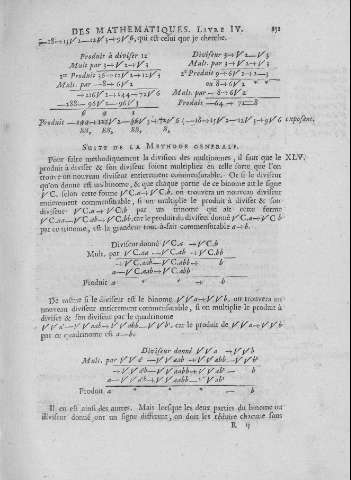 DES MATHEMATIQUES. LIVRE IV.
—28→15√2—12√3→9√6, qui est celui que je cherche.
Produit à diviser 12
Diviseur 3→√2—√3
Mult par 3→√2→√3
Mult. par 3→√2→√3
2e Produit 9→6√2→2—3
ou 8→6√2
Mult. par —8→6√2
→216√2→144→72√6
Produit —64→72—8
—288—96√2—96√3
exposant,
SUITE DE LA METHODE GENERALE.
Pour faire méthodiquement la division des multinomes, il faut que le XLV.
produit à diviser & son diviseur soient multipliez en telle sorte que l'on
trouve un nouveau diviseur entierement commensurable. Or si le diviseur
qu'on donne est un binome, & que chaque partie de ce binome ait le signe
√C. selon cette forme √C.a→√C.b, on trouvera un nouveau diviseur
entierement commensurable, si on multiplie le produit à diviser & son
diviseur √C.a→√C.b par un trinome qui ait cette forme
√C.aa—√C.ab→√C.bb, car le produit du diviseur donné √C.a→√C.b
par ce trinome, est la grandeur tout-à-fait commensurable a→b.
Diviseur donné √C.a →√C.b
Mult. par √C.aa —√C.ab →√C.bb
→√C.aab—√C.abb→ b
a—√C.aab→√C.abb
Produit a * * → b
De même si le diviseur est le binome √√a→√√b, on trouvera un
nouveau diviseur entierement commensurable, si on multiplie le produit à
diviser & son diviseur par le quadrinome
√√a³—√√aab→√√abb—√√b³, car le produit de √√a→√√b
par ce quadrinome est a—b.
Diviseur donné √√a →√√b
Mult. par √√a³ —√√aab →√√abb—√√b³
→√√a³b—√√aabb→√√ab³ — b
a—√√a³b→√√aabb—√√ab³
Produit a * * * — b
Il en est ainsi des autres. Mais lorsque les deux parties du binome ou
diviseur donné, ont un signe different, on doit les réduire chacune sous
R ij